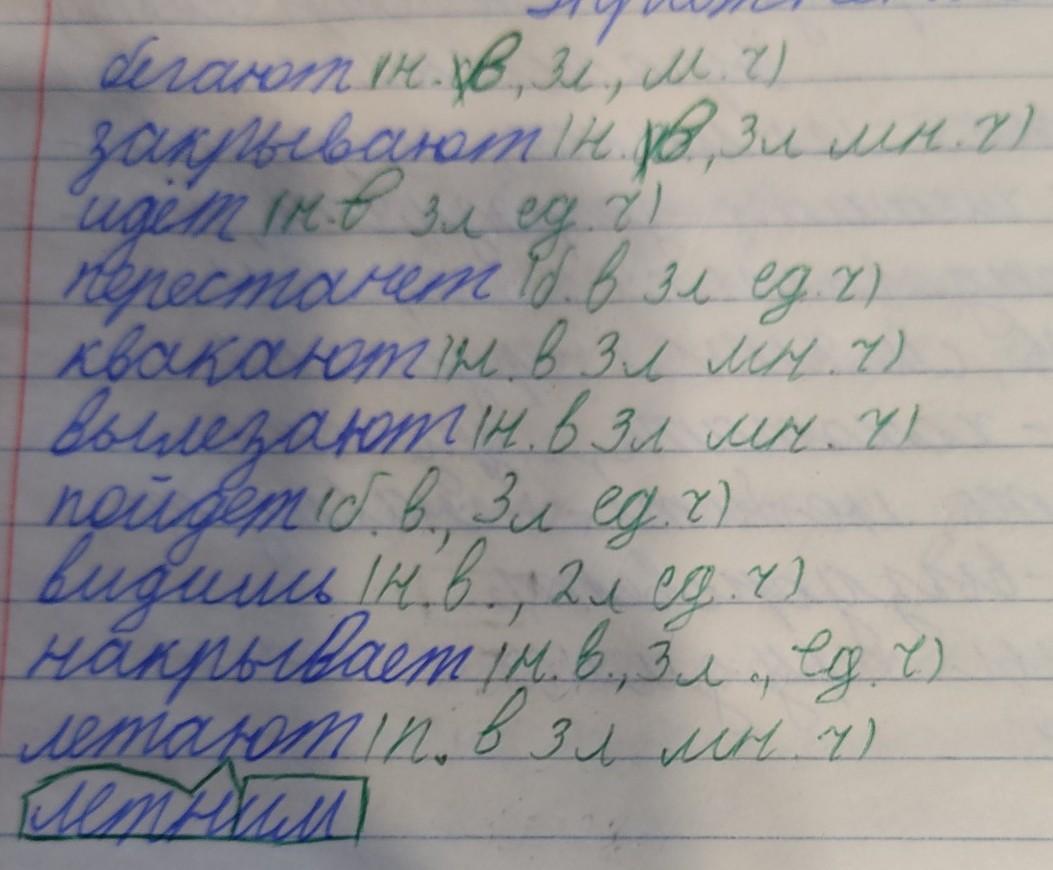 бегают (н. в, 3л., м. ч)
закрывают (н. в, 3л мн. ч)
идёт (н. в 3л ед. ч)
перестанет (б. в 3л ед. ч)
квакают (н. в 3л мн. ч)
вылезают (н. в 3л мн. ч)
пойдет (б. в., 3л ед. ч)
видишь (н. в., 2л ед. ч)
накрывает (н. в., 3л., ед. ч)
летают (п. в 3л мн. ч)
летним